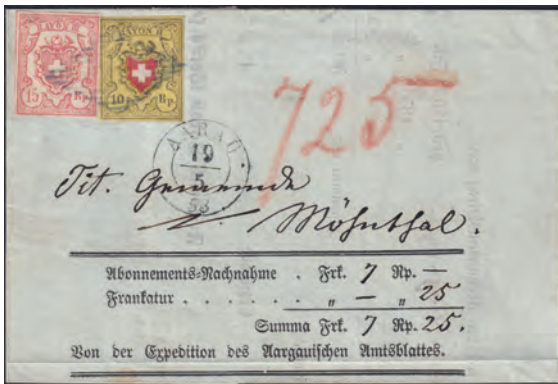 RAYON II
15 Rp. 10 Rp
725
AARAU
19
5
53
Tit. Gemeinde
Möhnthal.
Abonnements-Nachnahme . Frk. 7 Rp. —
Frankatur . . . . . . „ — „ 25
Summa Frk. 7 Rp. 25.
Von der Expedition des Aargauischen Amtsblattes.